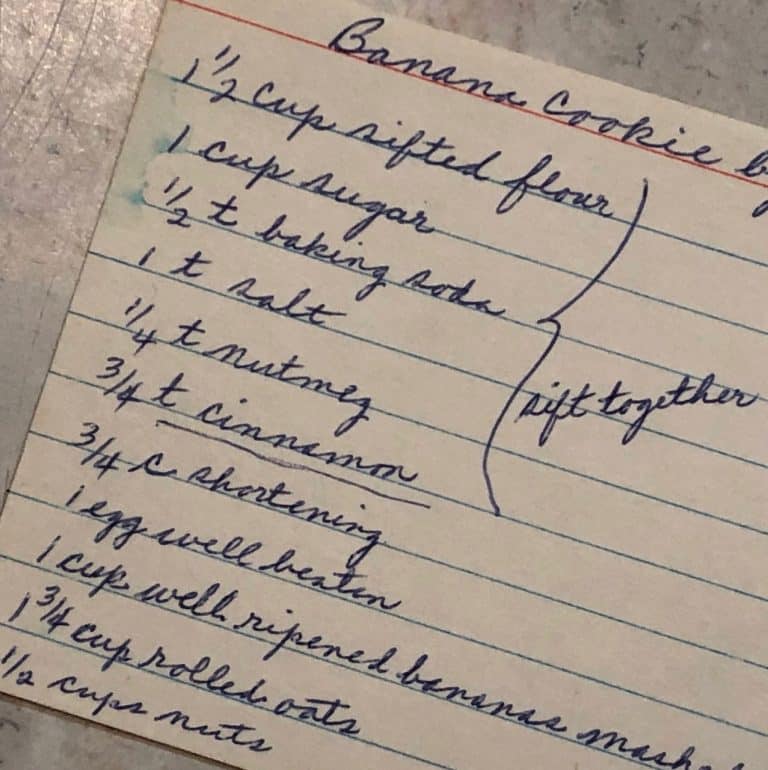 Banana Cookie
1 1/2 cup sifted flour
1 cup sugar
1/2 t baking soda
1 t salt
1/4 t nutmeg
3/4 t cinnamon
sift together
3/4 c shortening
1 egg well beaten
1 cup well ripened bananas mash
1 3/4 cup rolled oats
1/2 cups nuts